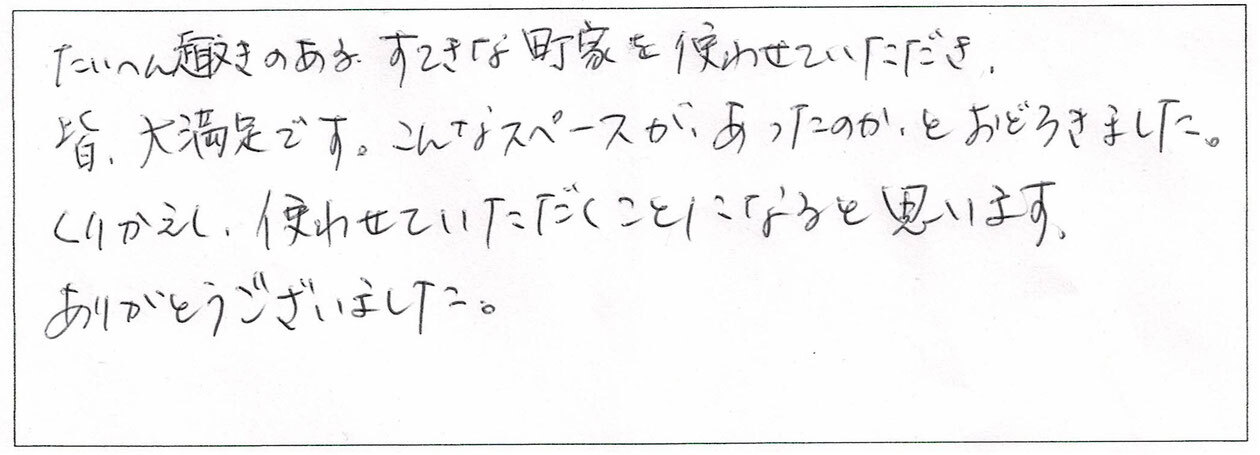 たいへん趣きのある すてきな町家を使わせていただき、
皆、大満足です。こんなスペースが、あったのか、とおどろきました。
くりかえし、使わせていただくことになると思います、
ありがとうございました。